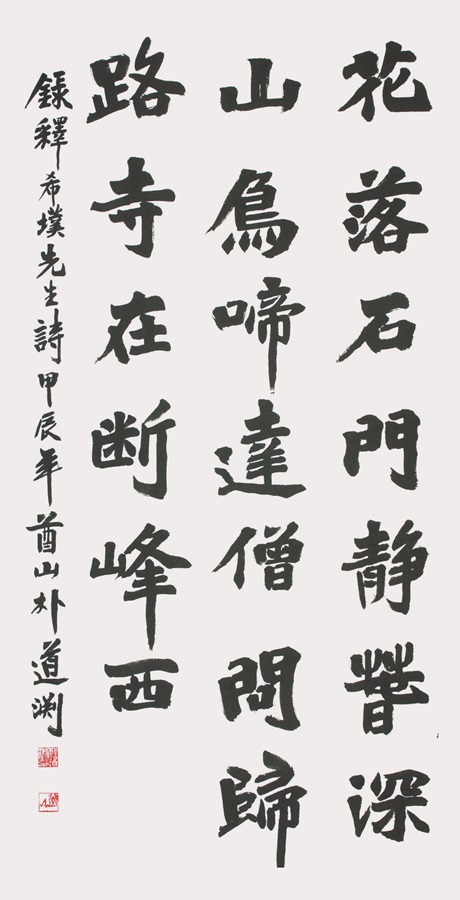 花落石門静萅深
山鳥啼達僧問歸
路寺在断峰西
録釋希墣先生詩甲辰年酋山朴道渕